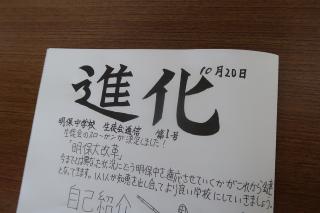 10月20日
進化
明保中学校 生徒会通信 第1号
生徒会のスローガンが決定しました!
「明保大改革」
今までとは異なる状況にどう明保中を適応させていくかがこれから鍵
となってきます。1人1人が知恵を出し合ってより良い学校にしていきましょう。
自己紹介